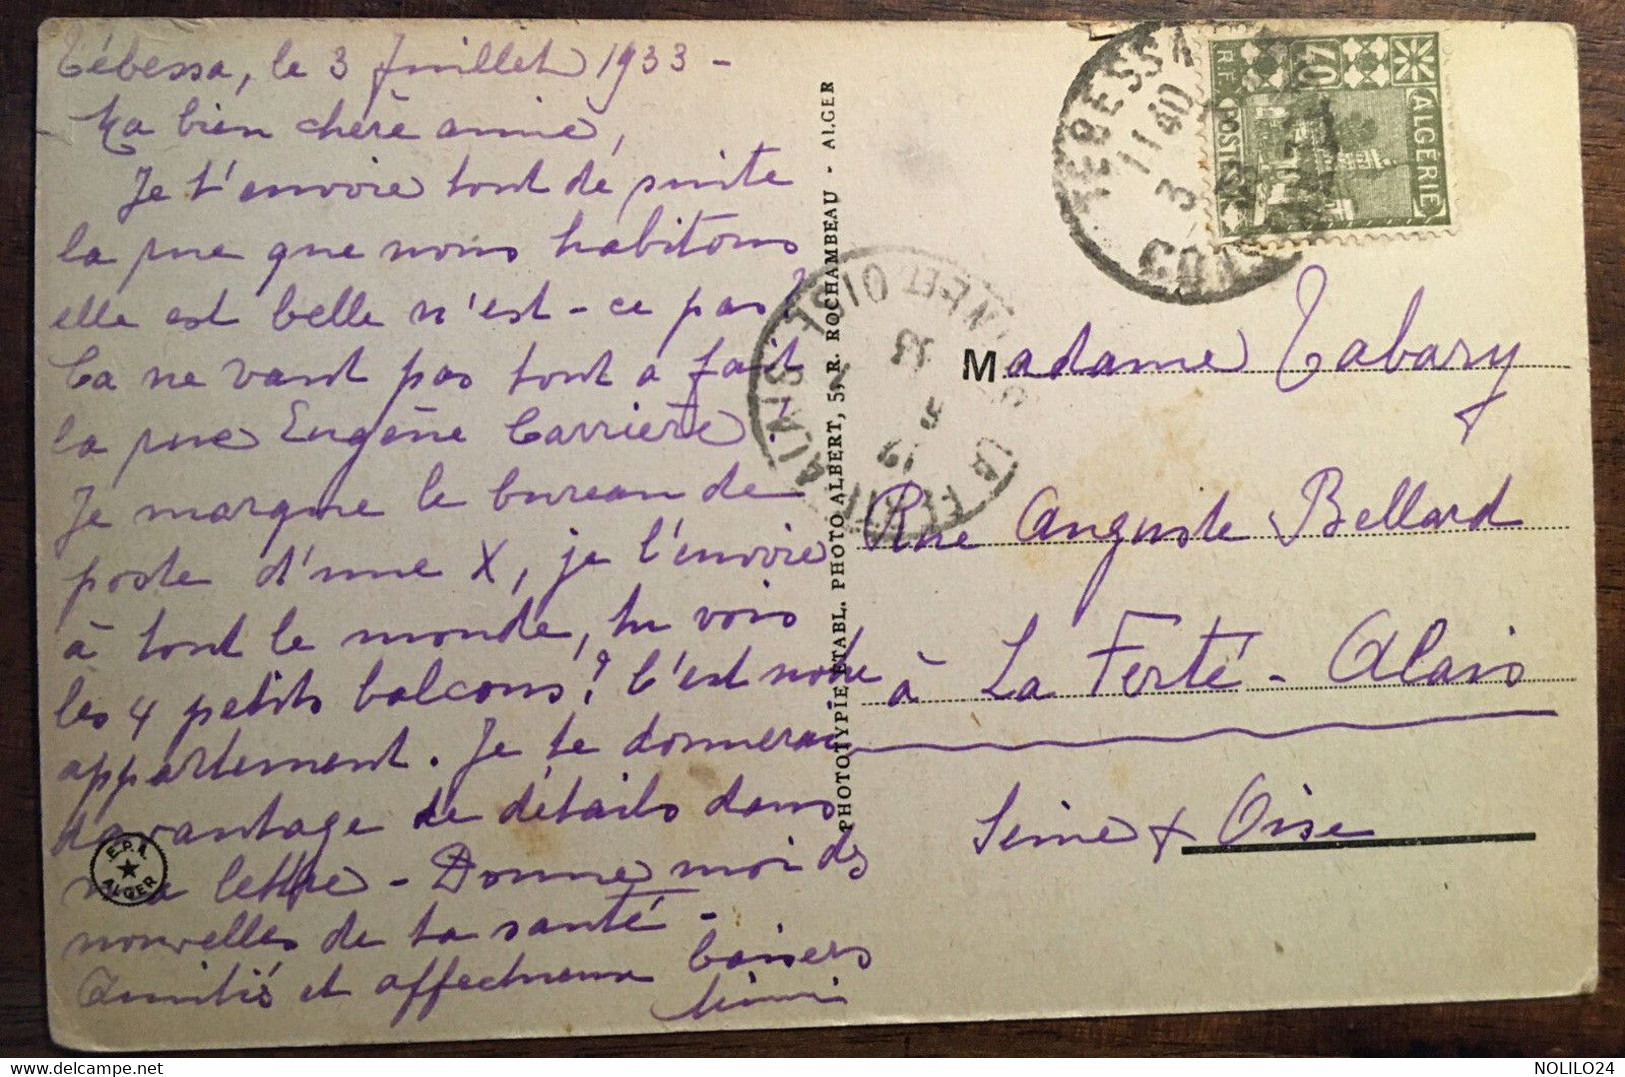 Tébessa, le 3 Juillet 1933 -
Ma bien chère amie,
Je t'envoie tout de suite
la rue que nous habitons
elle est belle n'est-ce pas?
Ça ne vaut pas tout à fait
la rue Eugène Carrière!
Je marque le bureau de
poste d'une X, je l'envoie
à tout le monde, tu vois
les 4 petits balcons? C'est notre
appartement. Je te donnerai
davantage de détails dans
ma lettre - Donne moi des
nouvelles de ta santé -
Amitiés et affectueux baisers
Mimi
E.P.A. ALGER
PHOTOTYPIE ETABL. PHOTO ALBERT, 5, R. ROCHAMBEAU - ALGER
TEBESSA
11 40
3
LA FERTE ALAIS SEINE ET OISE
19
5
33
ALGÉRIE
40
R.F. POSTES
Madame Tabary
Rue Auguste Bellard
à La Ferté-Alais
Seine & Oise
NOLILO24